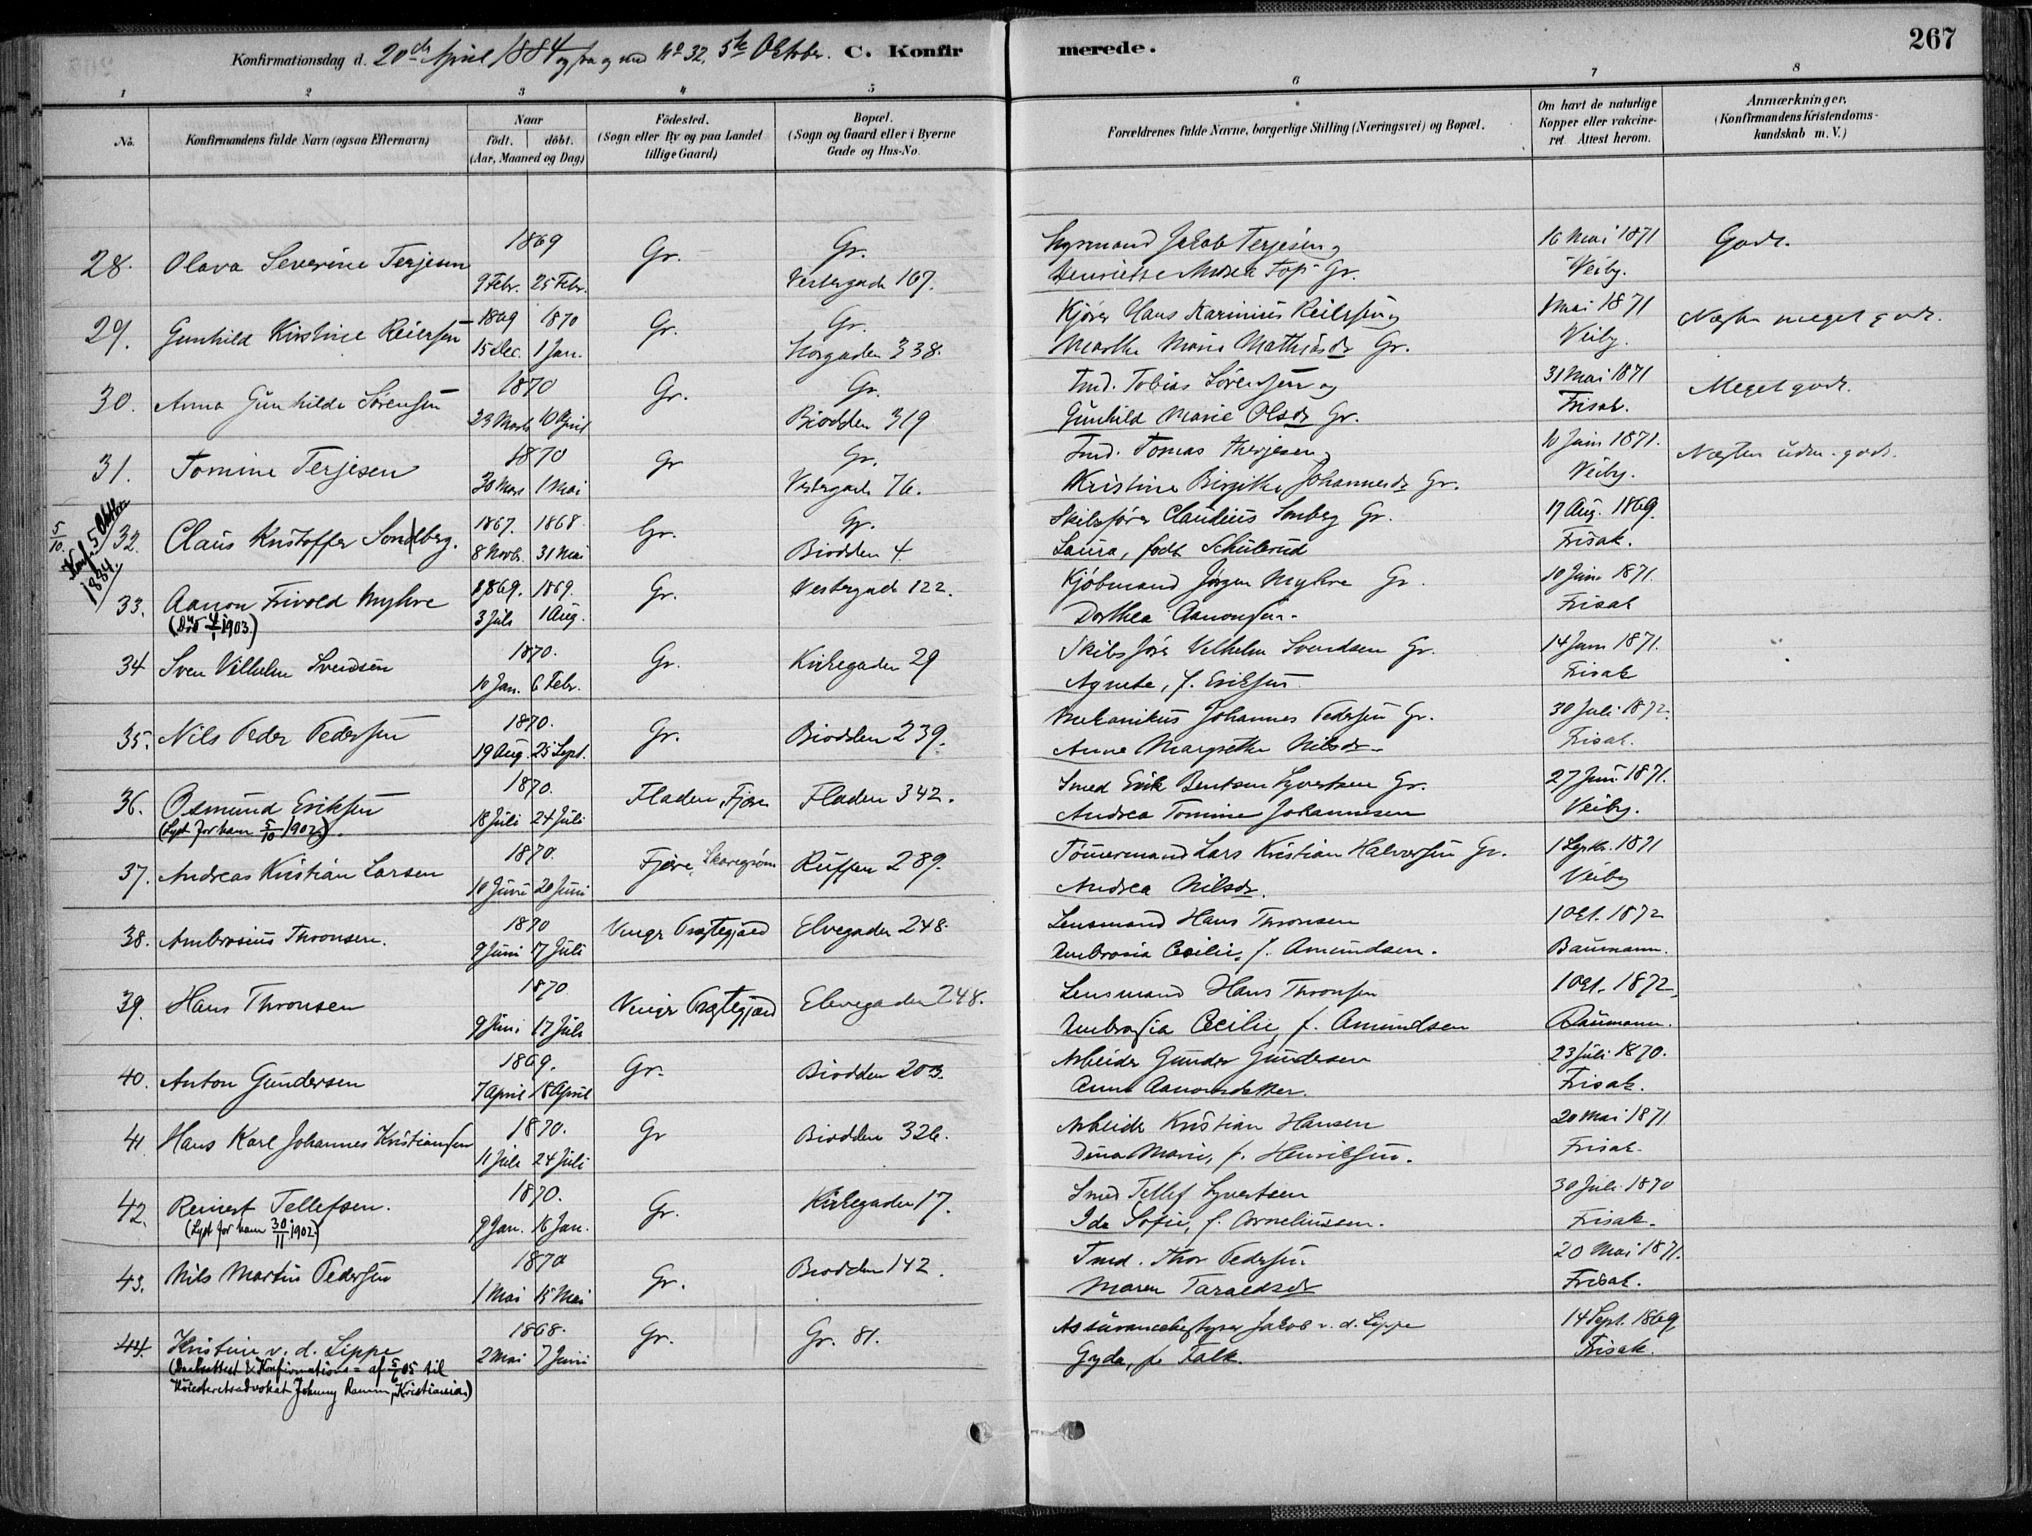 267
Konfirmationsdag d. 20de April 1884 og fra og med No 32, 5te Oktober. C. Konfirmerede.
1 2 3 4 5 6 7 8
No. Konfirmandens fulde Navn (ogsaa Efternavn) Naar födt. döbt. (Aar, Maaned og Dag) Födested. (Sogn eller By og paa Landet tillige Gaard) Bopæl. (Sogn og Gaard eller i Byerne Gade og Hus-No. Forældrenes fulde Navne, borgerlige Stilling (Næringsvei) og Bopæl. Om havt de naturlige Kopper eller vakcineret. Attest herom. Anmærkninger. (Konfirmandens Kristendomskundskab m. V.)
1869 Gr. Jakob Terjesen og 16 Mai 1871 Godt.
28. Olava Severine Terjesen 9 Febr. 25 Febr. Gr. Vestergade 167. Gr. Veiby.
1869 1870 Gr. Kjører Hans 1 Mai 1871
29. Gunhild Kirstine Reiersen 15 Dec. 1 Jan. Gr. Storgaden 338. Marthe Marie Mathiasdr Gr. Veiby. Næsten meget godt.
1870 Gr. Tmd. Tobias Sørensen og 31 Mai 1871
30. Anna Gunhilde Sørensen 23 Marts 10 April Gr. Biodden 319 Gunhild Marie Olsdr Gr. Frisak. Meget godt.
1870 Gr. Tmd. Tomas Therjesen, 10 Juni 1871.
31. Tomine Terjesen 30 Mars 1 Mai Gr Vestergade 76. Kristine Birgitha Johannesdr Gr. Veiby. Næsten udm. godt.
5/10. Konf. 5 Oktbr 1884.
1867. 1868. Gr. Skibsfører Claudius Sonberg Gr. 17 Aug. 1869.
32. Claus Kristoffer Sondberg. 8 Novbr. 31 Mai Gr. Biodden 4. Laura, født Schulerud Frisak.
1869. 1869. Kjøbmand Jørgen Myhre Gr. 10 Juni 1871.
33. Aanon Frivold Myhre 3 Juli 1 Aug. Gr. Vestergade 122. Dorthea Aanonsen. Frisak
(Død 4/1 1903.)
1870. Skibsfører Vilhelm Svendsen Gr. 14 Juni 1871.
34 Sven Vilhelm Svendsen 10 Jan. 6 Febr. Gr. Kirkegaden 29 Agnete, f. Eriksen Frisak
1870. Mekanikus Johannes Pedersen Gr. 30 Juli 1872.
35. Nils Peder Pedersen 19 Aug. 25 Sept. Gr. Biodden 239. Anne Margrethe Nilsdr Frisak.
1870. Smed Erik Bentsen Syvertsen Gr. 27 Juni 1871.
36. Osmund Eriksen 18 Juli 24 Juli Fladen, Fjære Fladen 342. Andrea Tomine Johannesen Veiby.
(Lyst for ham 5/10 1902.)
1870. Tømmermand Lars Kristian Halvorsen Gr. 1 Septbr. 1871
37. Andreas Kristian Larsen 10 Juni 20 Juni Fjære, Ruffen 289. Andrea Nilsdr. Veiby
1870 Lensmand Hans Thronsen 1 Oct. 1872
38. Ambrosius Thronsen. 9 Juni 17 Juli Vinger Elvegaden 248. Ambrosia Cecilie, f. Amundsen. Baumann.
1870 Lensmand Hans Thronsen 1 Oct. 1872,
39. Hans Thronsen 9 Juni 17 Juli Vinger Elvegaden 248. Ambrosia Cecilie, f. Amundsen Baumann.
1869. Arbeider Gunder Gundersen 23 Juli 1870.
40. Anton Gundersen 7 April 18 April Gr. Biodden 203. Anne Aanonsdatter. Frisak.
1870. Arbeider Kristian Hansen 20 Mai 1871
41. Hans Karl Johannes Kristiansen 11 Juli 24 Juli Gr Biodden 326. Dina Marie, f. Henriksen. Frisak.
1870. Smed Tellef Syvertsen 30 Juli 1870
42. Reinert Tellefsen. 9 Jan. 16 Jan. Gr. Kirkegaden 17. Ida Sofie, f. Corneliussen. Frisak.
(Lyst for ham 30/11 1902.)
1870 Tmd. Thor Pedersen. 20 Mai 1871.
43. Nils Martin Pedersen 1 Mai 15 Mai Gr. Biodden 142. Maren Taraldsdr Frisak.
1868. Jakob v. d. Lippe 14 Sept. 1869
44. Kristine v. d. Lippe 2 Mai 7 Juni Gr. Gr. 81. Gyda, f. Falk. Frisak.
(Daabsattest & Konfirmations= af 5/6 05 til
Høiesteretsadvokat Johnny Ramm, Kristiania)